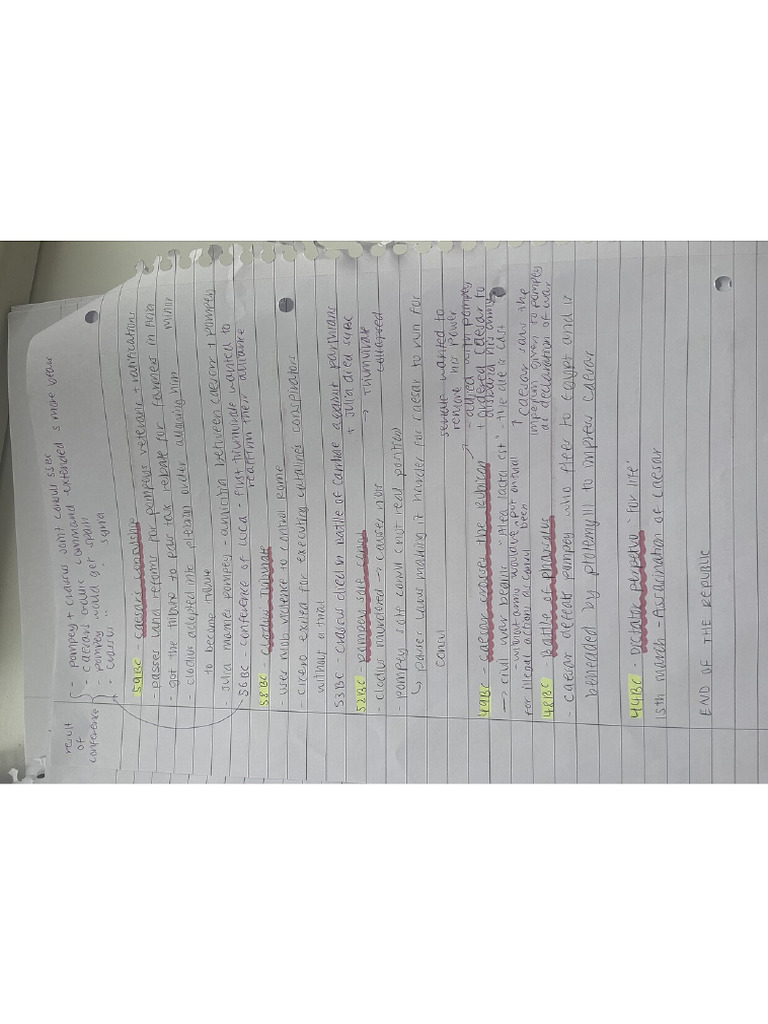 result of conference
- pompey + crassus joint consul 55BC
- caesars gallic command extended 5 more years
- pompey would get spain
- crassus " " syria
59BC - caesars consulship
- passes land reforms for pompeys veterans + ratifications
- got the tribune to pass tax rebate for farmers in Asia
- clodius adopted into plebian order allowing him
to become tribune
- Julia marries pompey - connection between caesar + pompey
56BC - conference of Luca - first triumvirate wanted to
reaffirm their alliance
58BC - clodius tribunate
- uses mob violence to control Rome
- cicero exiled for executing catalines conspirators
without a trial
53BC - crassus died in battle of carrhae against parthians
+ Julia died 54BC
52BC - pompey sole consul
→ triumvirate collapsed
- clodius murdered → causes riots
- pompey sole consul (not real position)
↳ passes laws making it harder for caesar to run for
consul
senate wanted to
remove his power
49BC - caesar crosses the rubicon
- allied with pompey
+ ordered caesar to
disband his army
→ civil war begins "Alea iacta est" - the die is cast
- without army would've been put on trial
for illegal actions as consul
↑ caesar saw the
imperium given to pompey
as declaration of war
48BC - battle of pharsalus
- caesar defeats pompey who flees to Egypt and is
beheaded by ptolemy III to impress caesar
44BC - Dictator perpetuo 'for life'
15th march - Assasination of caesar
END OF THE REPUBLIC